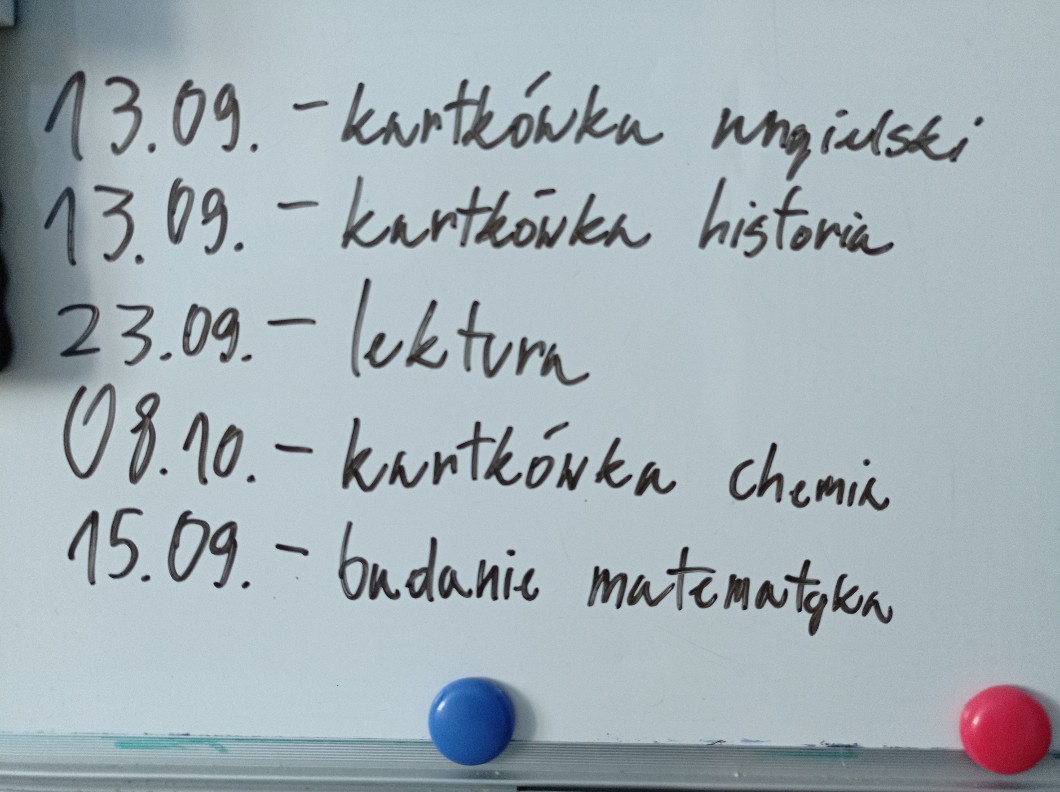 13.09. - kartkówka angielski
13.09. - kartkówka historia
23.09. - lektura
08.10. - kartkówka chemia
15.09. - badanie matematyka